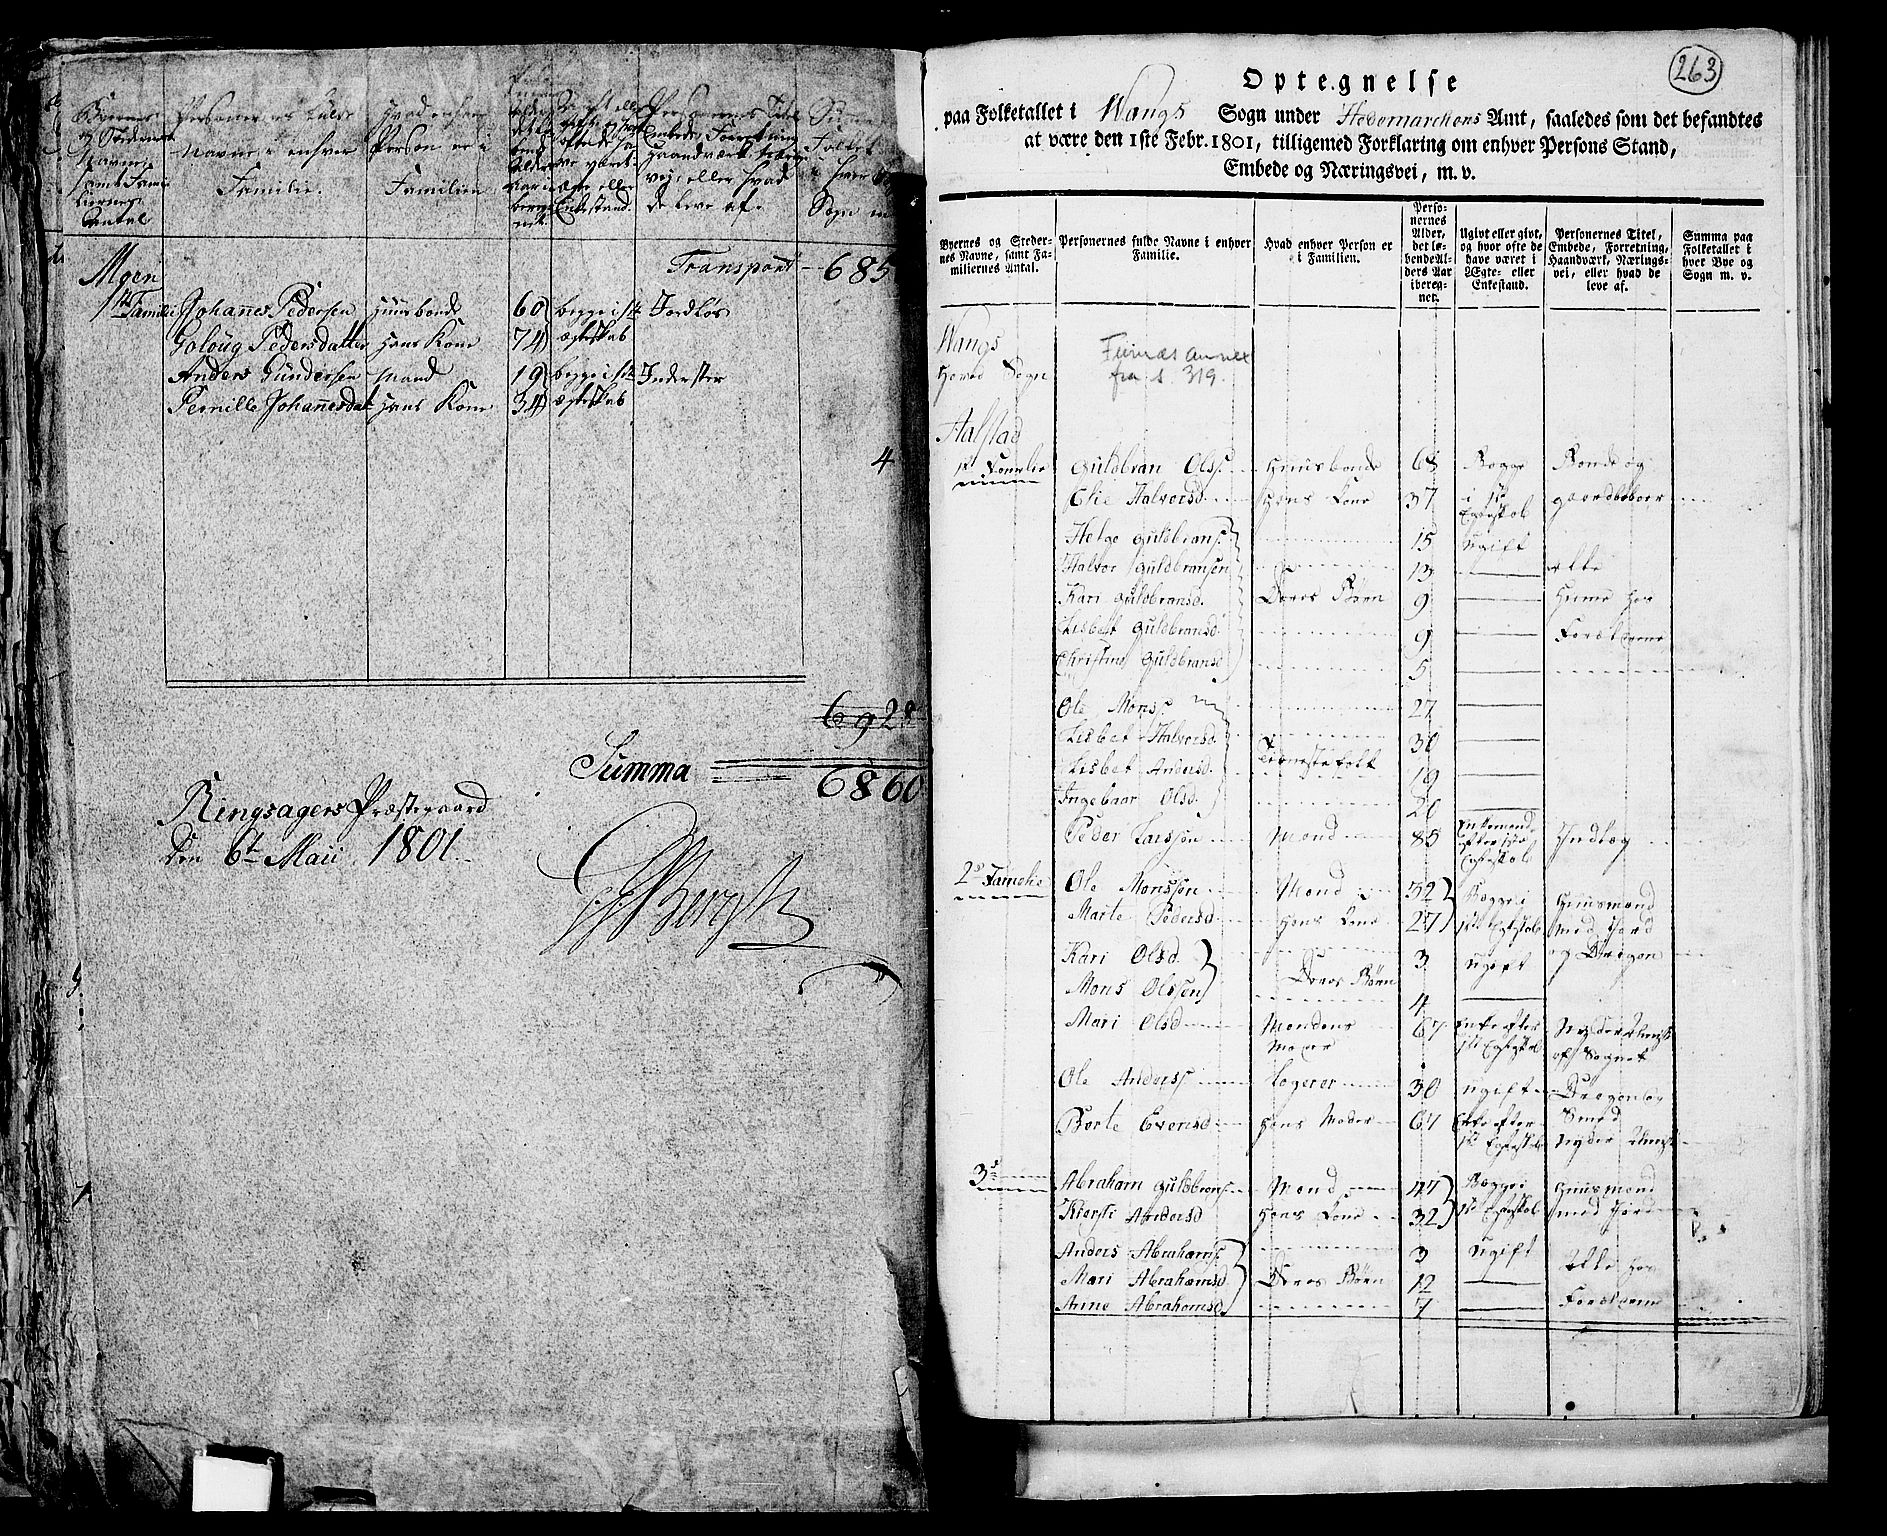 Byernes
og Stedernes
Navne,
samt Fami-
liernes
Antal
Personernes fulde
Navne i enhver
Familie.
Hvad enhver
Person er i
Familien
Embede, Forretning,
Haandværk, Nærings-
vej, eller hvad
de leve af.
Moen
Transport - 685
1te Famili Johannes Pedersen Huusbonde 60 begge i 1te Jordløs
Goloug Pedersdatter Hans Kone 74 ægteskab
Anders Gundersen Mand 19 begge i 1te Inderster
Pernille Johannesdat Hans Kone 34 ægteskab
4
Summa 6860
Ringsagers Præstegaard
den 6te Maii 1801.
263
Optegnelse
paa Folketallet i Wangs Sogn under Hedemarchens Amt, saaledes som det befandtes
at være den 1ste Febr. 1801, tilligemed Forklaring om enhver Persons Stand,
Embede og Næringsvei, m. v.
Byernes og Steder-
nes Navne, samt Fa-
miliernes Antal.
Personernes fulde Navne i enhver
Familie.
Hvad enhver Person er
i Familien.
Perso-
nernes
Alder,
det lø-
bende Al-
ders Aar
ibereg-
net.
Ugivt eller givt,
og hvor ofte de
have været i
Ægte- eller
Enkestand.
Personernes Titel,
Embede, Forretning,
Haandværk, Nærings-
vei, eller hvad de
leve af.
Summa paa
Folketallet i
hver Bye og
Sogn m. v.
Wangs
Hoved Sogn
Furnæs annex
fra s. 319.
Aalstad
1te Familie Guldbran Olss. Huusbonde 68 Begge Bonde og
Elie Halvorsd. Hans Kone 37 i 1te Egteskab gaardbeboer
Helge Guldbrans. 15 Ugift
Halvor Guldbransen 13 alle
Kari Guldbransd. Deres Børn 9 Hieme hos
Lisbet Guldbransd. 9 Forældrene
Christine Guldbransd 5
Ole Monss. 27
Lisbet Halvorsd. 30
Lisbet Andersd. Tienestefolk 19
Ingebaar Olsd. 26
Peder Larssøn Mand 85 Enkemand efter 1te Egteskab Indlæg
2d Familie Ole Monssøn Mand 32 Begge i Huusmand
Marte Pedersd Hans Kone 27 1te Egteskab med Jord
Kari Olsd. 3 ugift og Dragon
Mons Olssøn Deres Børn 4
Mari Olsd Mandens Moder 67 Enke efter 1te Egteskab Nyder Almisse af Sognet
Ole Anderss. Logerer 30 ugift Dragon og
Berte Evensd Hans Moder 67 Enke efter 1te Egteskab Smed Nyder Almisse
3d Abraham Guldbrans. Mand 47 Begge i Huusmand
Kiersti Andersd Hans Kone 32 1te Egteskab med Jord
Anders Abrahams. 3 Ugift
Mari Abrahamsd Deres Børn 12 Alle hos
Anne Abrahamsd. 7 Forældrene